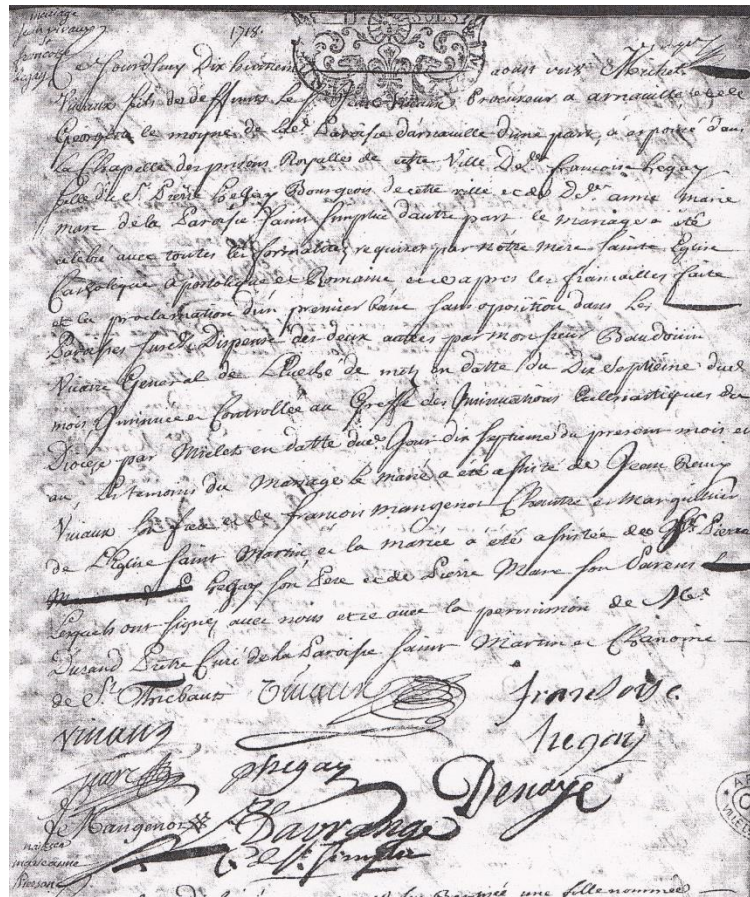 mariage
vivaux
francoise
hegay
1718.
Ce Jourdhuy Dix huitiem aoust Michel
Vivaux fils de deffunts le Sr Jean Vivaux Procureur a arnaville et de
Georgette le moyne de lad. Paroisse darnaville d'une part, a epousé dans
la Chapelle des prisons Royalles de cette Ville Dlle francoise hegay
fille du Sr Pierre hegay Bourgeois de cette ville et de Dlle anne marie
marc de la Paroisse Saint Simplice d'autre part le mariage a été
celebré avec toutes les formalités requises par nôtre mere Sainte Eglise
Catholique apostolique et Romaine et ce apres les fiancailles faite
et la proclamation d'un premier banc sans oposition dans les
Paroisses Dispense des deux autres par monsieur Baudouin
Vicaire General de Leveché de metz en datte du Dix Septieme dud.
mois Insinuée et Controllée au Greffe des Insinuations Ecclesiastiques du
Diocese par Milet en datte dud. Jour dix septieme du present mois et
an, Les temoins du Mariage le marié a été assisté de Jean Remy
Vivaux son frere et de francois mangenot Chantre et Marguillier
de L'Eglise Saint Martin et la mariée a été assistée de Sr Pierre
hegay son Pere et de Pierre Marc son Parent
Lesquels ont signez avec nous et ce avec la permission de Mr
Dusand Prêtre Curé de la Paroisse Saint Martin et Chanoine
de St Thiebaut Vivaux francoise
vivaux hegay
marc phegay Denayé
Mangenot Lavrange
C. de St Simplice
marieanne
une fille nommée